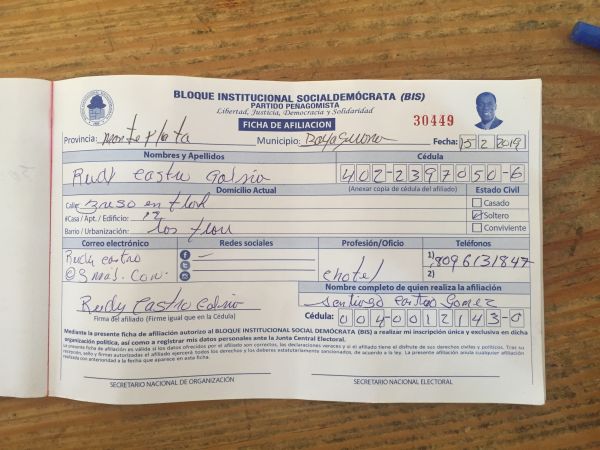 BLOQUE INSTITUCIONAL SOCIALDEMÓCRATA (BIS)
PARTIDO PEÑAGOMISTA
Libertad, Justicia, Democracia y Solidaridad
FICHA DE AFILIACION
30449
Provincia: Monte Plata Municipio: Bayaguana Fecha: 15/2/2019
Nombres y Apellidos Cédula
Rudy Castro 402-2397050-6
Domicilio Actual (Anexar copia de cédula del afiliado) Estado Civil
Calle: Casado
#Casa / Apt. / Edificio: 12 Soltero
Barrio / Urbanización: los Conviviente
Correo electrónico Redes sociales Profesión/Oficio Teléfonos
Rudy castro 1) 8096131847
@Gmail.Com. chofel 2)
Nombre completo de quien realiza la afiliación
Rudy Castro Santiago Castro Gomez
Firma del afiliado (Firme igual que en la Cédula) Cédula: 004-0012143-0
Mediante la presente ficha de afiliación autorizo al BLOQUE INSTITUCIONAL SOCIAL DEMÓCRATA (BIS) a realizar mi inscripción única y exclusiva en dicha
organización política, así como a registrar mis datos personales ante la Junta Central Electoral.
La presente ficha de afiliación es válida si los datos ofrecidos por el afiliado son correctos, las declaraciones veraces y si el afiliado tiene el disfrute de sus derechos civiles y políticos. Tras su
recepción, sello y firmas autorizadas el afiliado ejercerá todos los derechos y los deberes estatutariamente sancionados, de acuerdo a la ley. La presente afiliación anula cualquier afiliación
realizada con anterioridad a la fecha que aparece en esta ficha.
SECRETARIO NACIONAL DE ORGANIZACIÓN SECRETARIO NACIONAL ELECTORAL